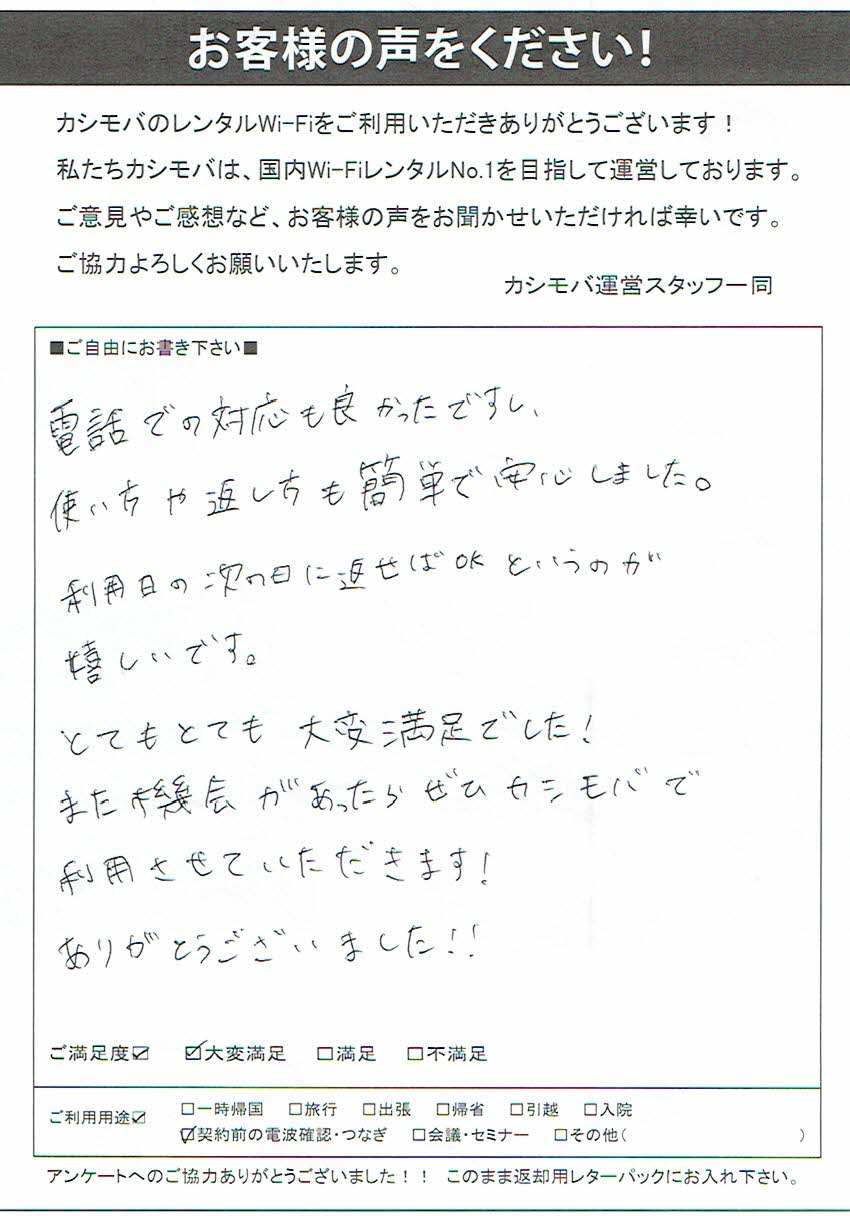 お客様の声をください！
カシモバのレンタルWi-Fiをご利用いただきありがとうございます！
私たちカシモバは、国内Wi-FiレンタルNo.1を目指して運営しております。
ご意見やご感想など、お客様の声をお聞かせいただければ幸いです。
ご協力よろしくお願いいたします。
カシモバ運営スタッフ一同
■ご自由にお書き下さい■
電話での対応も良かったですし、
使い方や返し方も簡単で安心しました。
利用日の次の日に返せばOKというのが
嬉しいです。
とてもとても 大変満足でした！
また機会があったらぜひカシモバで
利用させていただきます！
ありがとうございました！！
ご満足度☑ ☑大変満足 □満足 □不満足
ご利用用途☑ □一時帰国 □旅行 □出張 □帰省 □引越 □入院
☑契約前の電波確認・つなぎ □会議・セミナー □その他( )
アンケートへのご協力ありがとうございました！！ このまま返却用レターパックにお入れ下さい。